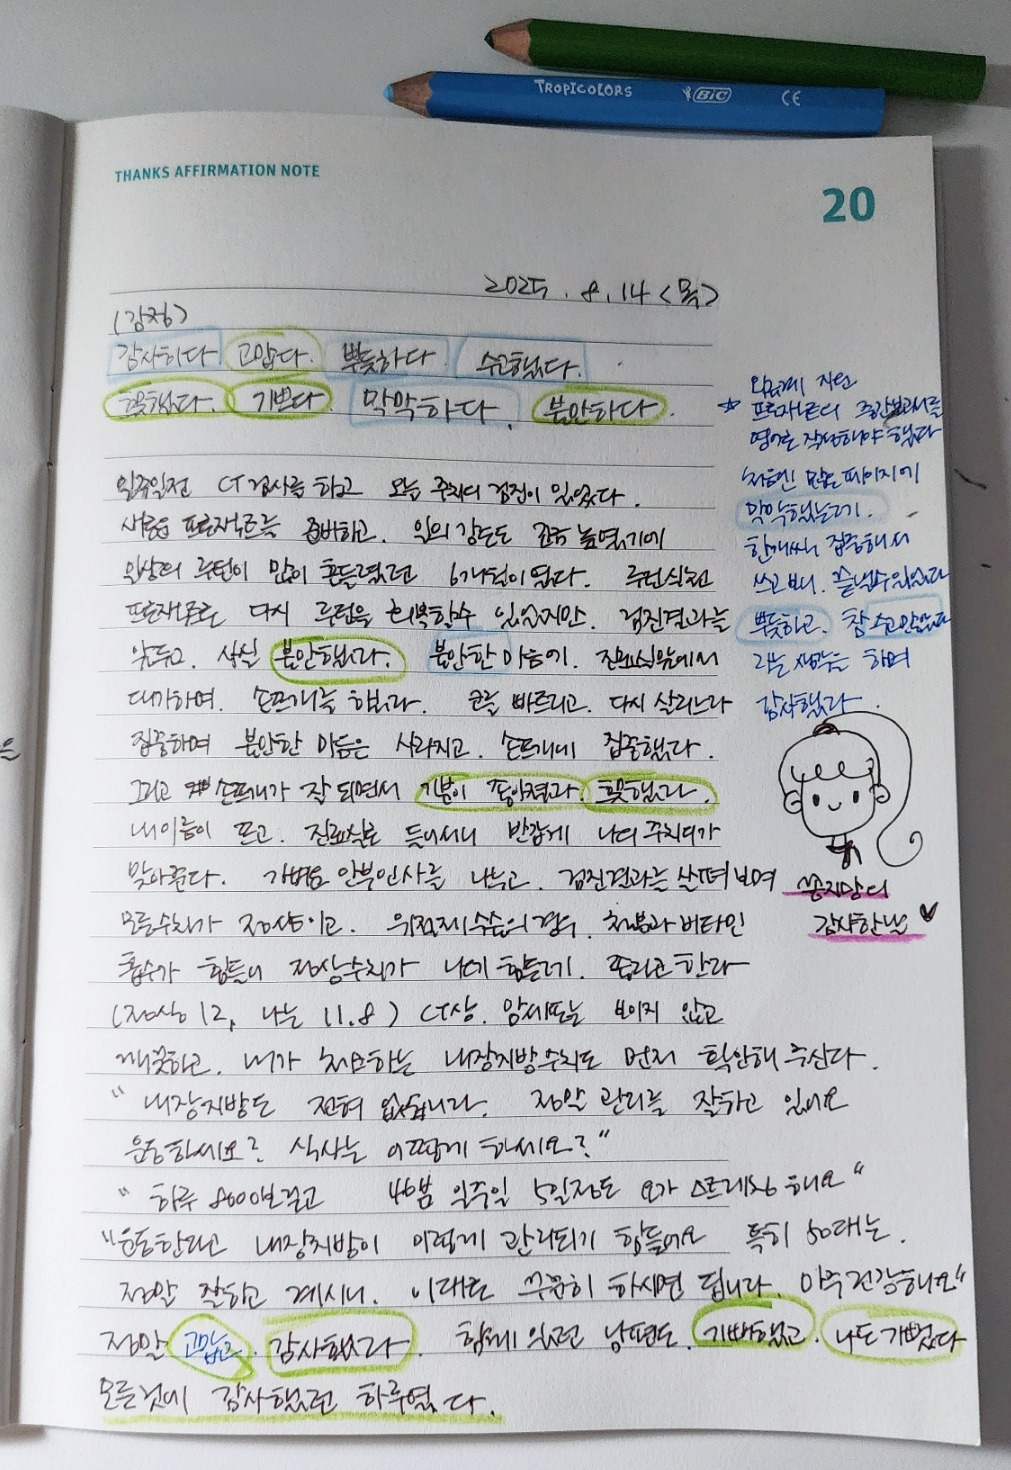 TROPICOLORS BIC CE
THANKS AFFIRMATION NOTE
20
2025. 8. 14 <목>
(감정)
감사하다 고맙다. 뿌듯하다 수고했다.
흐뭇했다. 기쁘다 막막하다. 불안하다.
일주일전 CT검사를 하고 오늘 주치의 검진이 있었다.
새로운 프로젝트를 준비하고. 일의 강도도 높였기에
일상의 루틴이 많이 흔들렸던 6개월이었다. 루틴실천
프로젝트로 다시 루틴을 회복할수 있었지만. 검진결과를
앞두고. 사실 불안했다. 불안한 마음에. 진료실앞에서
대기하며. 손뜨개를 했다. 코를 빠뜨리고. 다시 살리느라
집중하며 불안한 마음은 사라지고. 손뜨개에 집중했다.
그리고 손뜨개가 잘 되면서 기분이 좋아졌다. 흐뭇했다.
내이름이 뜨고. 진료실로 들어서니 반갑게 나의 주치의가
맞아준다. 가벼운 안부인사를 나누고. 검진결과를 살펴보며
모든수치가 정상이고. 위전체수술의경우. 철분과 비타민
흡수가 힘들어 정상수치가 나오기 힘든데. 한다
(정상 12, 나는 11.8) CT상. 암세포는 보이지 않고
깨끗하고. 내가 하는 내장지방수치도 먼저 확인해 주신다.
"내장지방도 전혀 없습니다. 정말 관리를 잘하고 있어요
운동하세요? 식사는 어떻게 하세요?"
"하루 8000보걷고 40분 일주일 5일정도 요가 스트레칭 해요"
"운동한다고 내장지방이 이렇게 관리되기 힘들어요 특히 50대는.
정말 잘하고 계시니. 이대로 꾸준히 하시면 됩니다. 아주건강해요"
정말 고맙고. 감사했다. 함께 있던 남편도. 기뻐했고. 나도 기뻤다
모든것에 감사했던 하루였다.
☆ 프로젝트의 중간보고서를
영어로 작성해야 했다
처음엔 많은 페이지에
막막했는데.
한개씩 집중해서
쓰고보니. 끝낼수있었다
뿌듯하고. 참 수고많았다
라는 생각을 하며
감사했다.
감사한날 ♥